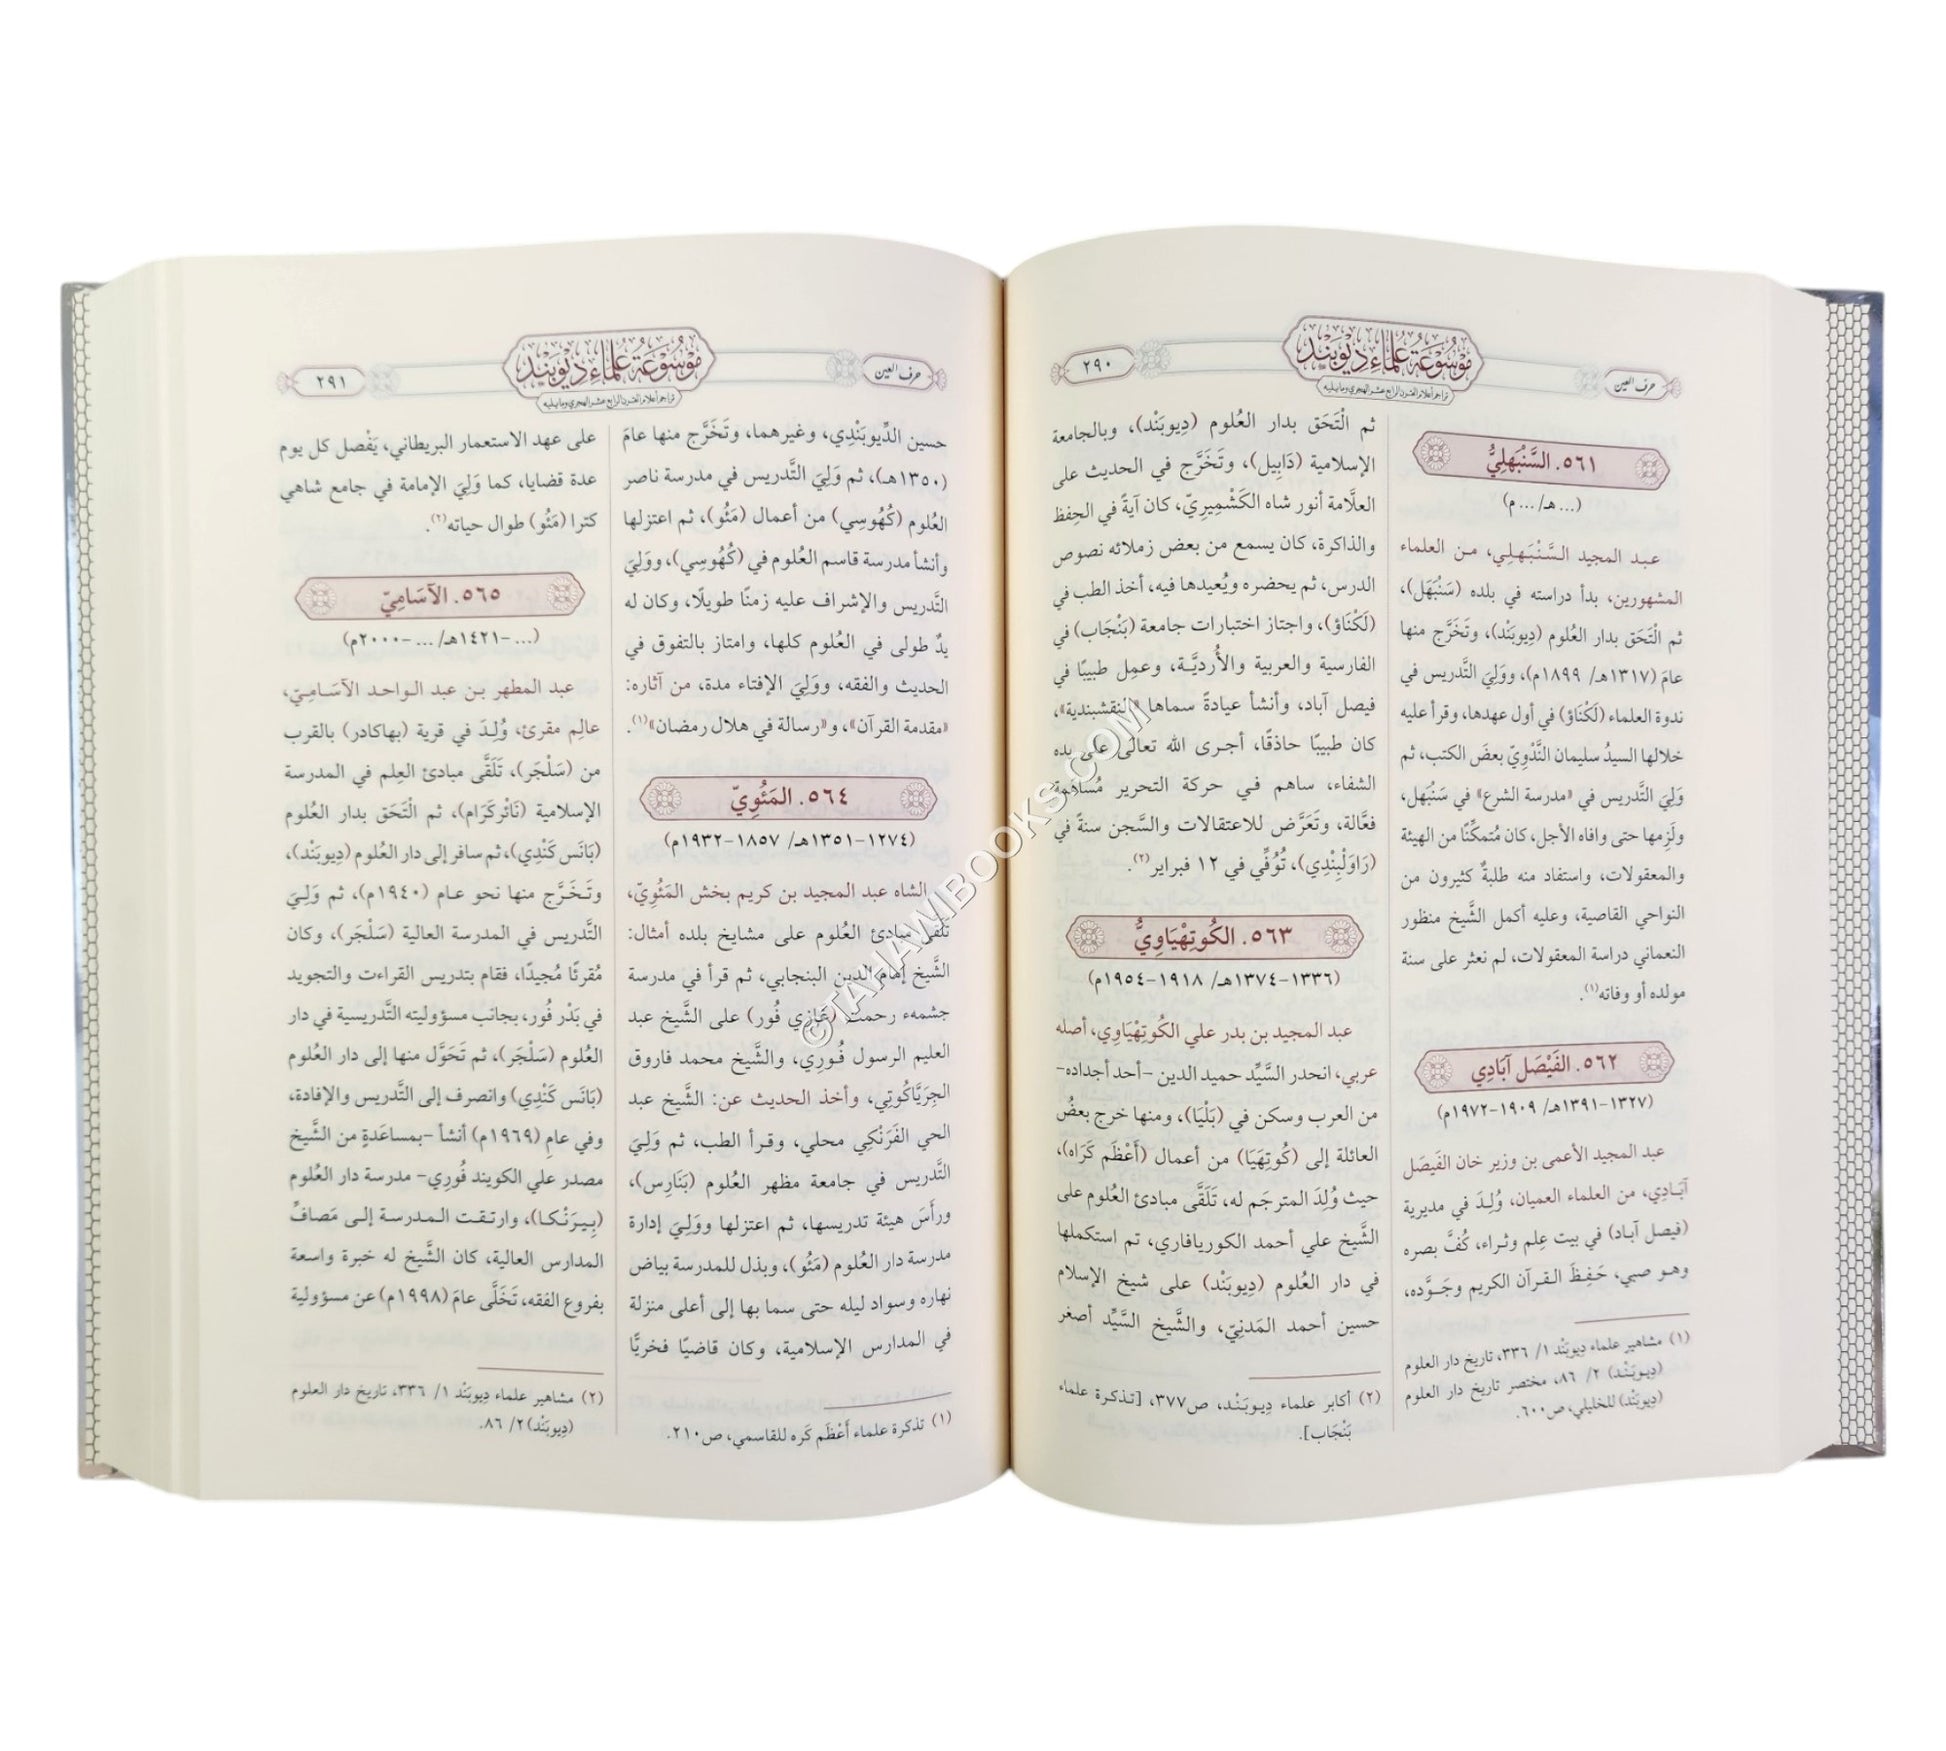 حرف العين
موسوعة علماء ديوبند
تراجم أعلام القرن الرابع عشر الهجري وما يليه
٢٩٠
٥٦١. السَّنْبُهلِيُّ
(... هـ/ ... م)
عبد المجيد السَّنْبَهلِي، من العلماء
المشهورين، بدأ دراسته في بلده (سَنْبُهَل)،
ثم الْتَحَق بدار العُلوم (دِيوبَنْد)، وتَخَرَّج منها
عامَ (١٣١٧هـ/ ١٨٩٩م)، ووَلِيَ التَّدريس في
ندوة العلماء (لَكْنَاؤ) في أول عهدها، وقرأ عليه
خلالها السيدُ سليمان النَّدْوِيّ بعضَ الكتب، ثم
وَلِيَ التَّدريس في «مدرسة الشرع» في سَنْبُهل،
ولَزِمها حتى وافاه الأجل، كان مُتمكِّنًا من الهيئة
والمعقولات، واستفاد منه طلبةٌ كثيرون من
النواحي القاصية، وعليه أكمل الشَّيخ منظور
النعماني دراسة المعقولات، لم نعثر على سنة
مولده أو وفاته(١).
٥٦٢. الفَيْصَل آبَادِي
(١٣٢٧-١٣٩١هـ/ ١٩٠٩-١٩٧٢م)
عبد المجيد الأعمى بن وزير خان الفَيصَل
آبَادِي، من العلماء العميان، وُلِدَ في مديرية
(فيصل آباد) في بيت عِلم وثراء، كُفَّ بصره
وهو صبي، حَفِظَ القرآن الكريم وجَوَّده،
(١) مشاهير علماء دِيوبَنْد ١/ ٣٣٦، تاريخ دار العلوم
(دِيوبَنْد) ٢/ ٨٦، مختصر تاريخ دار العلوم
(دِيوبَنْد) للخليلي، ص٦٠٠.
ثم الْتَحَق بدار العُلوم (دِيوبَنْد)، وبالجامعة
الإسلامية (دَابِيل)، وتَخَرَّج في الحديث على
العلَّامة أنور شاه الكَشْمِيرِيّ، كان آيةً في الحِفظ
والذاكرة، كان يسمع من بعض زملائه نصوص
الدرس، ثم يحضره ويُعيدها فيه، أخذ الطب في
(لَكْنَاؤ)، واجتاز اختبارات جامعة (بَنْجَاب) في
الفارسية والعربية والأُرديَّة، وعمِل طبيبًا في
فيصل آباد، وأنشأ عيادةً سماها «النقشبندية»،
كان طبيبًا حاذقًا، أجرى الله تعالى على يده
الشفاء، ساهم في حركة التحرير مُساهَمة
فعَّالة، وتَعَرَّض للاعتقالات والسَّجن سنةً في
(رَاوَلْبِنْدِي)، تُوُفِّي في ١٢ فبراير(٢).
٥٦٣. الكُوتِهْيَاوِيُّ
(١٣٣٦-١٣٧٤هـ/ ١٩١٨-١٩٥٤م)
عبد المجيد بن بدر علي الكُوتِهْيَاوِي، أصله
عربي، انحدر السَّيِّد حميد الدين -أحد أجداده-
من العرب وسكن في (بَلْيَا)، ومنها خرج بعضُ
العائلة إلى (كُوتِهَيَا) من أعمال (أَعْظَم كَرَاه)،
حيث وُلِدَ المترجَم له، تَلَقَّى مبادئ العُلوم على
الشَّيخ علي أحمد الكوريافاري، تم استكملها
في دار العُلوم (دِيوبَنْد) على شيخ الإسلام
حسين أحمد المَدنِيّ، والشَّيخ السَّيِّد أصغر
(٢) أكابر علماء دِيوبَنْد، ص٣٧٧، [تذكرة علماء
بَنْجَاب].
حرف العين
موسوعة علماء ديوبند
تراجم أعلام القرن الرابع عشر الهجري وما يليه
٢٩١
حسين الدِّيوبَنْدِي، وغيرهما، وتَخَرَّج منها عامَ
(١٣٥٠هـ)، ثم وَلِيَ التَّدريس في مدرسة ناصر
العُلوم (كُهُوسِي) من أعمال (مَئُو)، ثم اعتزلها
وأنشأ مدرسة قاسم العُلوم في (كُهُوسِي)، ووَلِيَ
التَّدريس والإشراف عليه زمنًا طويلًا، وكان له
يدٌ طولى في العُلوم كلها، وامتاز بالتفوق في
الحديث والفقه، ووَلِيَ الإفتاء مدة، من آثاره:
«مقدمة القرآن»، و«رسالة في هلال رمضان»(١).
٥٦٤. المَئُوِيّ
(١٢٧٤-١٣٥١هـ/ ١٨٥٧-١٩٣٢م)
الشاه عبد المجيد بن كريم بخش المَئُوِيّ،
تلقى مبادئ العُلوم على مشايخ بلده أمثال:
الشَّيخ إمام الدين البنجابي، ثم قرأ في مدرسة
جشمهء رحمت (غازي فُور) على الشَّيخ عبد
العليم الرسول فُورِي، والشَّيخ محمد فاروق
الجِرَيَّاكُوتِي، وأخذ الحديث عن: الشَّيخ عبد
الحي الفَرَنْكِي محلي، وقرأ الطب، ثم وَلِيَ
التَّدريس في جامعة مظهر العُلوم (بَنَارِس)،
ورأَسَ هيئة تدريسها، ثم اعتزلها ووَلِيَ إدارة
مدرسة دار العُلوم (مَئُو)، وبذل للمدرسة بياض
نهاره وسواد ليله حتى سما بها إلى أعلى منزلة
في المدارس الإسلامية، وكان قاضيًا فخريًّا
(١) تذكرة علماء أَعْظَم كَره للقاسمي، ص٢١٠.
على عهد الاستعمار البريطاني، يَفْصل كل يوم
عدة قضايا، كما وَلِيَ الإمامة في جامع شاهي
كترا (مَئُو) طوال حياته(٢).
٥٦٥. الآسَامِيّ
(... -١٤٢١هـ/ ... -٢٠٠٠م)
عبد المطهر بن عبد الواحد الآسَامِيّ،
عالِم مقرئ، وُلِدَ في قرية (بهاكادر) بالقرب
من (سَلْجَر)، تَلَقَّى مبادئ العِلم في المدرسة
الإسلامية (نَاتْركَرَام)، ثم الْتَحَق بدار العُلوم
(بَانَس كَنْدِي)، ثم سافر إلى دار العُلوم (دِيوبَنْد)،
وتَخَرَّج منها نحو عام (١٩٤٠م)، ثم وَلِيَ
التَّدريس في المدرسة العالية (سَلْجَر)، وكان
مُقرئًا مُجيدًا، فقام بتدريس القراءت والتجويد
في بَدْر فُور، بجانب مسؤوليته التَّدريسية في دار
العُلوم (سَلْجَر)، ثم تَحَوَّل منها إلى دار العُلوم
(بَانَس كَنْدِي) وانصرف إلى التَّدريس والإفادة،
وفي عام (١٩٦٩م) أنشأ -بمساعَدةٍ من الشَّيخ
مصدر علي الكويند فُورِي- مدرسة دار العُلوم
(بِيرَنْكا)، وارتقت المدرسة إلى مَصافِّ
المدارس العالية، كان الشَّيخ له خبرة واسعة
بفروع الفقه، تَخَلَّى عامَ (١٩٩٨م) عن مسؤولية
(٢) مشاهير علماء دِيوبَنْد ١/ ٣٣٦، تاريخ دار العلوم
(دِيوبَنْد) ٢/ ٨٦.
©TAHAWIBOOKS.COM